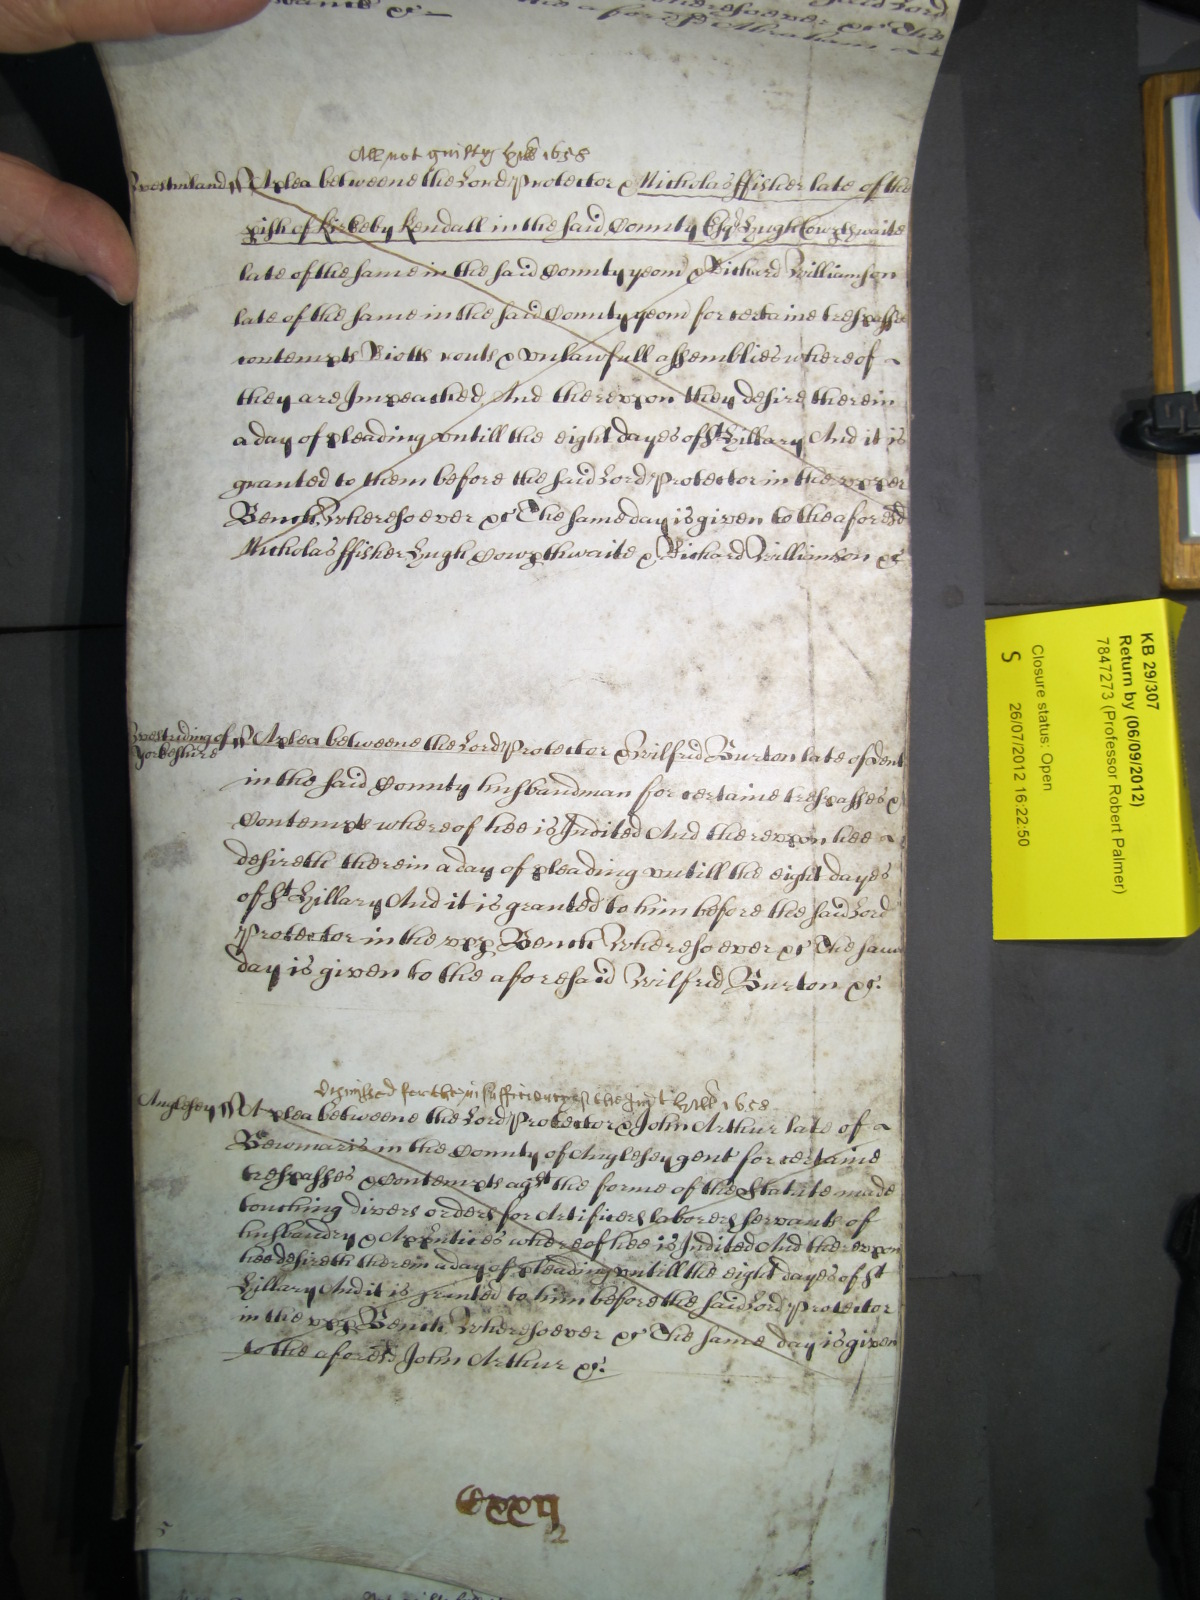 All not guilty Hill 1658
Westmland ss A plea betweene the Lord Protector & Nicholas ffisher late of the
pish of Kirkeby Kendall in the said County Esqr Hugh Cowpthwaite
late of the same in the said County yeom & Richard Williamson
late of the same in the said County yeom for certaine trespasses
contempts Riotts routs & vnlawfull assemblies whereof
they are Impeached And therevpon they desire therein
a day of pleading vntill the eight dayes of St Hillary And it is
granted to them before the said Lord Protector in the vpper
Bench Wheresoever &c The same day is given to the aforesd
Nicholas ffisher Hugh Cowpthwaite & Richard Williamson &c
Westriding of
Yorkeshire
ss A plea betweene the Lord Protector & Wilfrid Burton late of Dent
in the said County husbandman for certaine trespasses &
Contempts whereof hee is Indited And therevpon hee
desireth therein a day of pleading vntill the eight dayes
of St Hillary And it is granted to him before the said Lord
Protector in the vpp Bench Wheresoever &c The same
day is given to the aforesaid Wilfrid Burton &c
for the insufficiency of the Hill 1658
Anglesey ss A plea betweene the Lord Protector & John Arthur late of
Bewmaris in the County of Anglesey gent for certaine
trespasses & contempts agt the forme of the Statute made
touching divers orders for Artificers laborers servants of
husbandry & Apprntices whereof hee is Indited And therevpon
hee desireth therein a day of pleading vntill the eight dayes of St
Hillary And it is granted to him before the said Lord Protector
in the vpp Bench Wheresoever &c The same day is given
to the aforesd John Arthur &c
Cxxij
KB 29/307
Return by (06/09/2012)
7847273 (Professor Robert Palmer)
Closure status: Open
S 26/07/2012 16:22:50